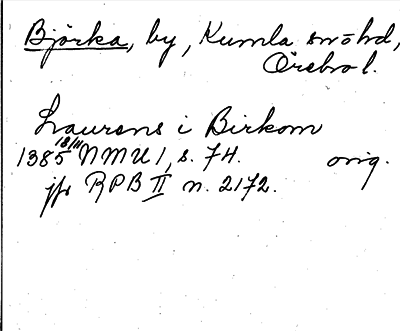 Björka, by, Kumla snöhd,
Örebro l.
Laurens i Birkom
1385 18/11 NMU 1, s. 74. orig.
jfr RPB II n. 2172.